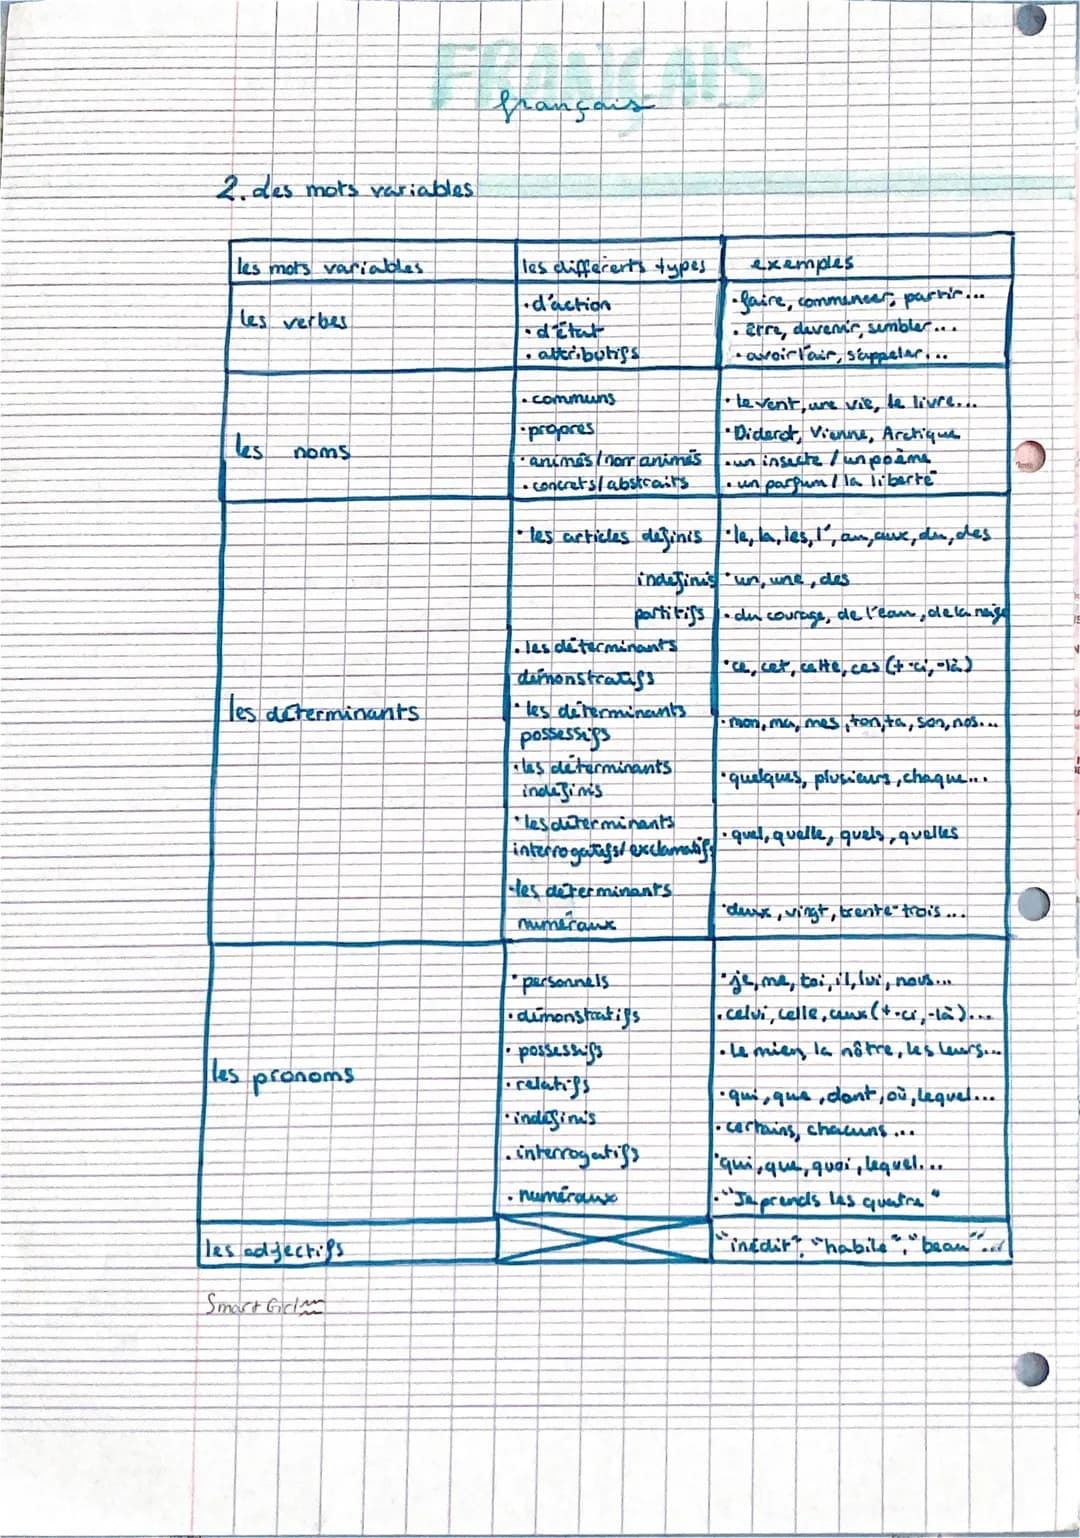 FRANÇAIS
français
2. des mots variables
les mots variables
les différents types
exemples
les verbes
• d'action
• d'état
• attributifs
• faire, commencer, partir...
• être, devenir, sembler...
• avoir l'air, s'appeler...
les noms
• communs
• propres
• animés / non animés
• concrets / abstraits
• le vent, une vie, le livre...
• Diderot, Vienne, Arctique
• un insecte / un poème
• un parfum / la liberté
les déterminants
• les articles définis
indéfinis
partitifs
• les déterminants
démonstratifs
• les déterminants
possessifs
• les déterminants
indéfinis
• les déterminants
interrogatifs/exclamatifs
• les déterminants
numéraux
• le, la, les, l', au, aux, du, des
• un, une, des
• du courage, de l'eau, de la neige
• ce, cet, cette, ces (+ -ci, -là)
• mon, ma, mes, ton, ta, son, nos...
• quelques, plusieurs, chaque...
• quel, quelle, quels, quelles
• deux, vingt, trente-trois...
les pronoms
• personnels
• démonstratifs
• possessifs
• relatifs
• indéfinis
• interrogatifs
• numéraux
• je, me, toi, il, lui, nous...
• celui, celle, ceux (+ -ci, -là)...
• le mien, la nôtre, les leurs...
• qui, que, dont, où, lequel...
• certains, chacuns...
• qui, que, quoi, lequel...
• "Je prends les quatre"
les adjectifs
"inédit", "habile", "beau"...
Smart Girl